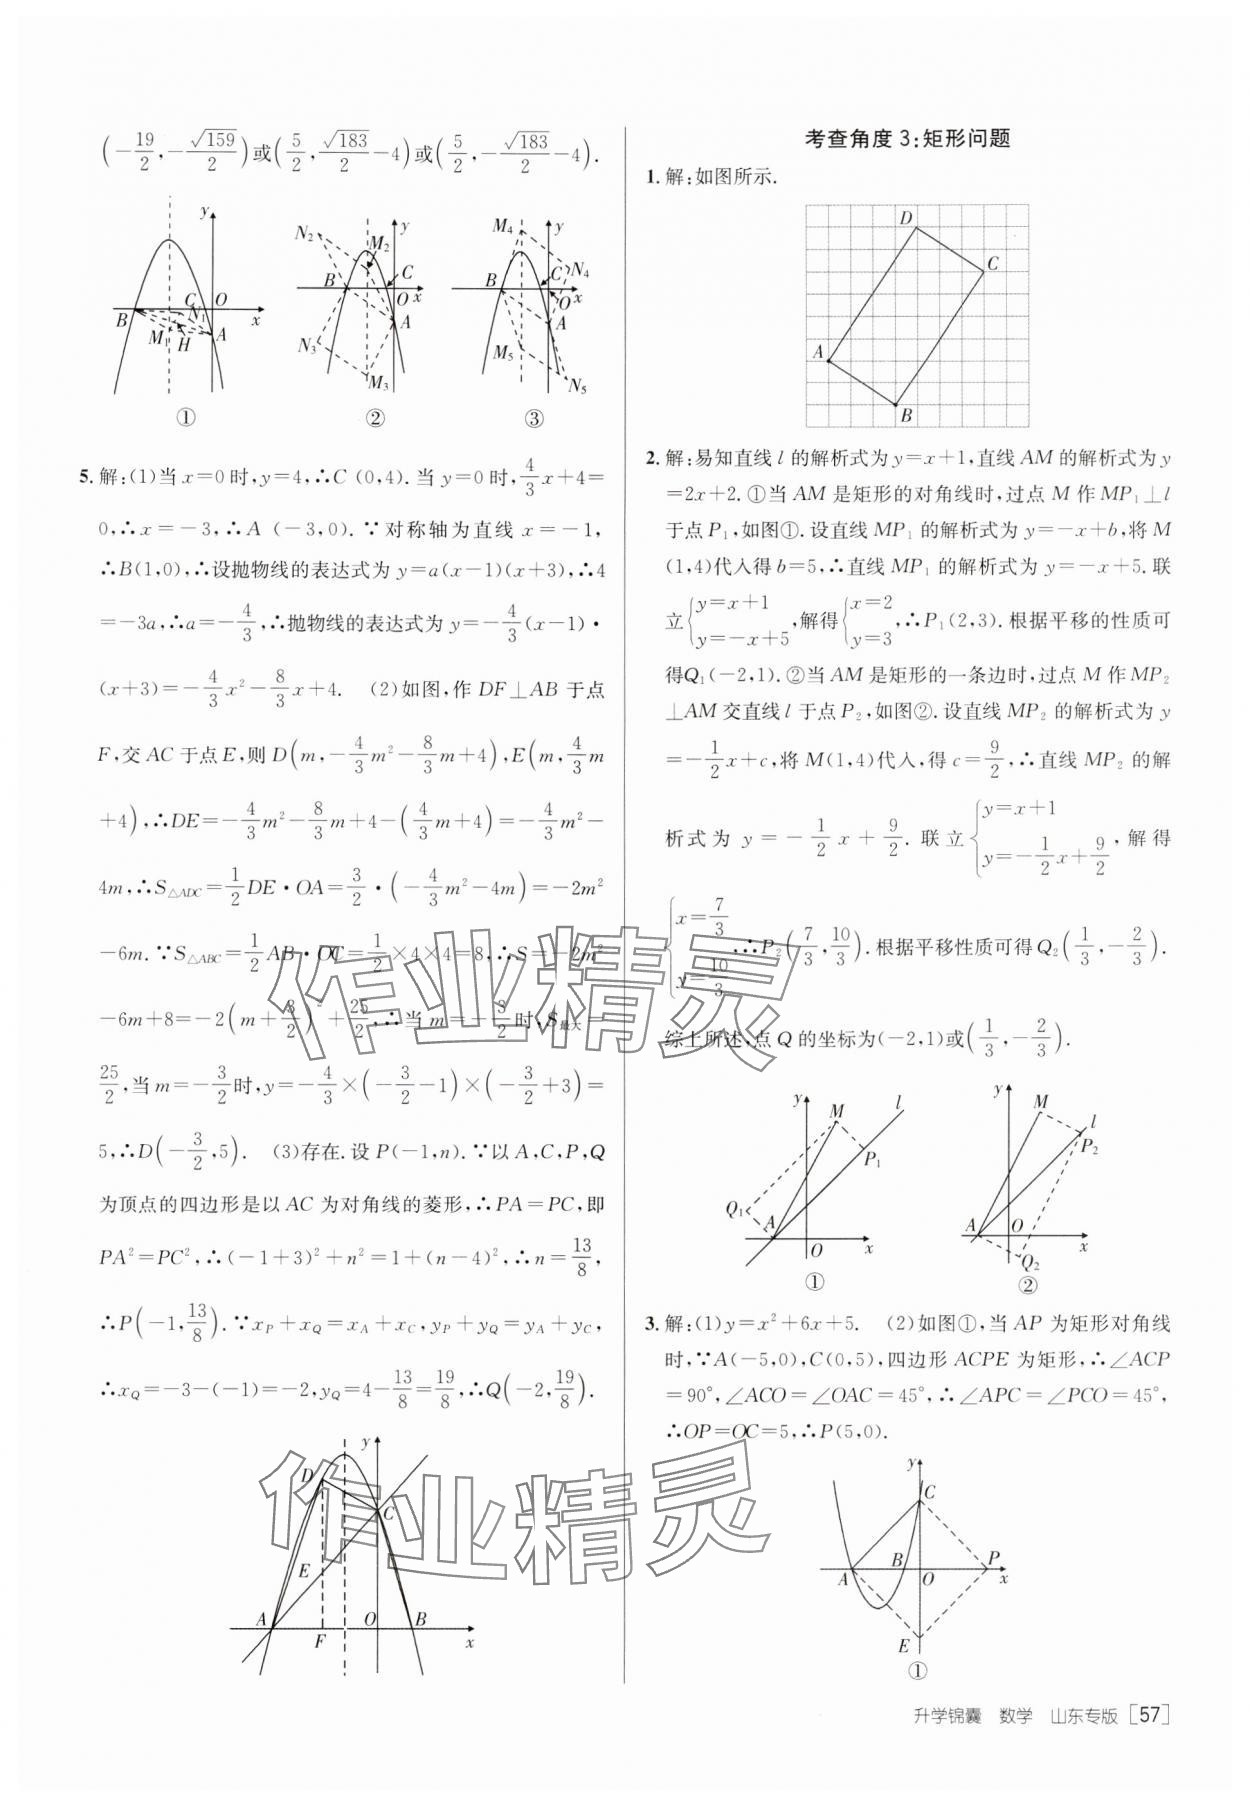 (-19/2,-√159/2)或(5/2,√183/2-4)或(5/2,-√183/2-4).
①
②
③
5.解:(1)当x=0时,y=4,∴C(0,4).当y=0时,4/3x+4=
0,∴x=-3,∴A(-3,0).∵对称轴为直线x=-1,
∴B(1,0),∴设抛物线的表达式为y=a(x-1)(x+3),∴4
=-3a,∴a=-4/3,∴抛物线的表达式为y=-4/3(x-1)·
(x+3)=-4/3x²-8/3x+4. (2)如图,作DF⊥AB于点
F,交AC于点E,则D(m,-4/3m²-8/3m+4),E(m,4/3m
+4),∴DE=-4/3m²-8/3m+4-(4/3m+4)=-4/3m²-
4m,∴S△ADC=1/2DE·OA=3/2·(-4/3m²-4m)=-2m²
-6m.∵S△ABC=1/2AB·OC=1/2×4×4=8,∴S=-2m²
-6m+8=-2(m+3/2)²+25/2,∴当m=-3/2时,S最大=
25/2,当m=-3/2时,y=-4/3×(-3/2-1)×(-3/2+3)=
5,∴D(-3/2,5). (3)存在.设P(-1,n).∵以A,C,P,Q
为顶点的四边形是以AC为对角线的菱形,∴PA=PC,即
PA²=PC²,∴(-1+3)²+n²=1+(n-4)²,∴n=13/8,
∴P(-1,13/8).∵xP+xQ=xA+xC,yP+yQ=yA+yC,
∴xQ=-3-(-1)=-2,yQ=4-13/8=19/8,∴Q(-2,19/8).
考查角度3:矩形问题
1.解:如图所示.
2.解:易知直线l的解析式为y=x+1,直线AM的解析式为y
=2x+2.①当AM是矩形的对角线时,过点M作MP₁⊥l
于点P₁,如图①.设直线MP₁的解析式为y=-x+b,将M
(1,4)代入得b=5,∴直线MP₁的解析式为y=-x+5.联
立{y=x+1 y=-x+5,解得{x=2 y=3,∴P₁(2,3).根据平移的性质可
得Q₁(-2,1).②当AM是矩形的一条边时,过点M作MP₂
⊥AM交直线l于点P₂,如图②.设直线MP₂的解析式为y
=-1/2x+c,将M(1,4)代入,得c=9/2,∴直线MP₂的解
析式为y=-1/2x+9/2.联立{y=x+1 y=-1/2x+9/2,解得
{x=7/3 y=10/3,∴P₂(7/3,10/3).根据平移性质可得Q₂(1/3,-2/3).
综上所述,点Q的坐标为(-2,1)或(1/3,-2/3).
①
②
3.解:(1)y=x²+6x+5. (2)如图①,当AP为矩形对角线
时,∵A(-5,0),C(0,5),四边形ACPE为矩形,∴∠ACP
=90°,∠ACO=∠OAC=45°,∴∠APC=∠PCO=45°,
∴OP=OC=5,∴P(5,0).
①
作业精灵
作业精灵
升学锦囊 数学 山东专版[57]